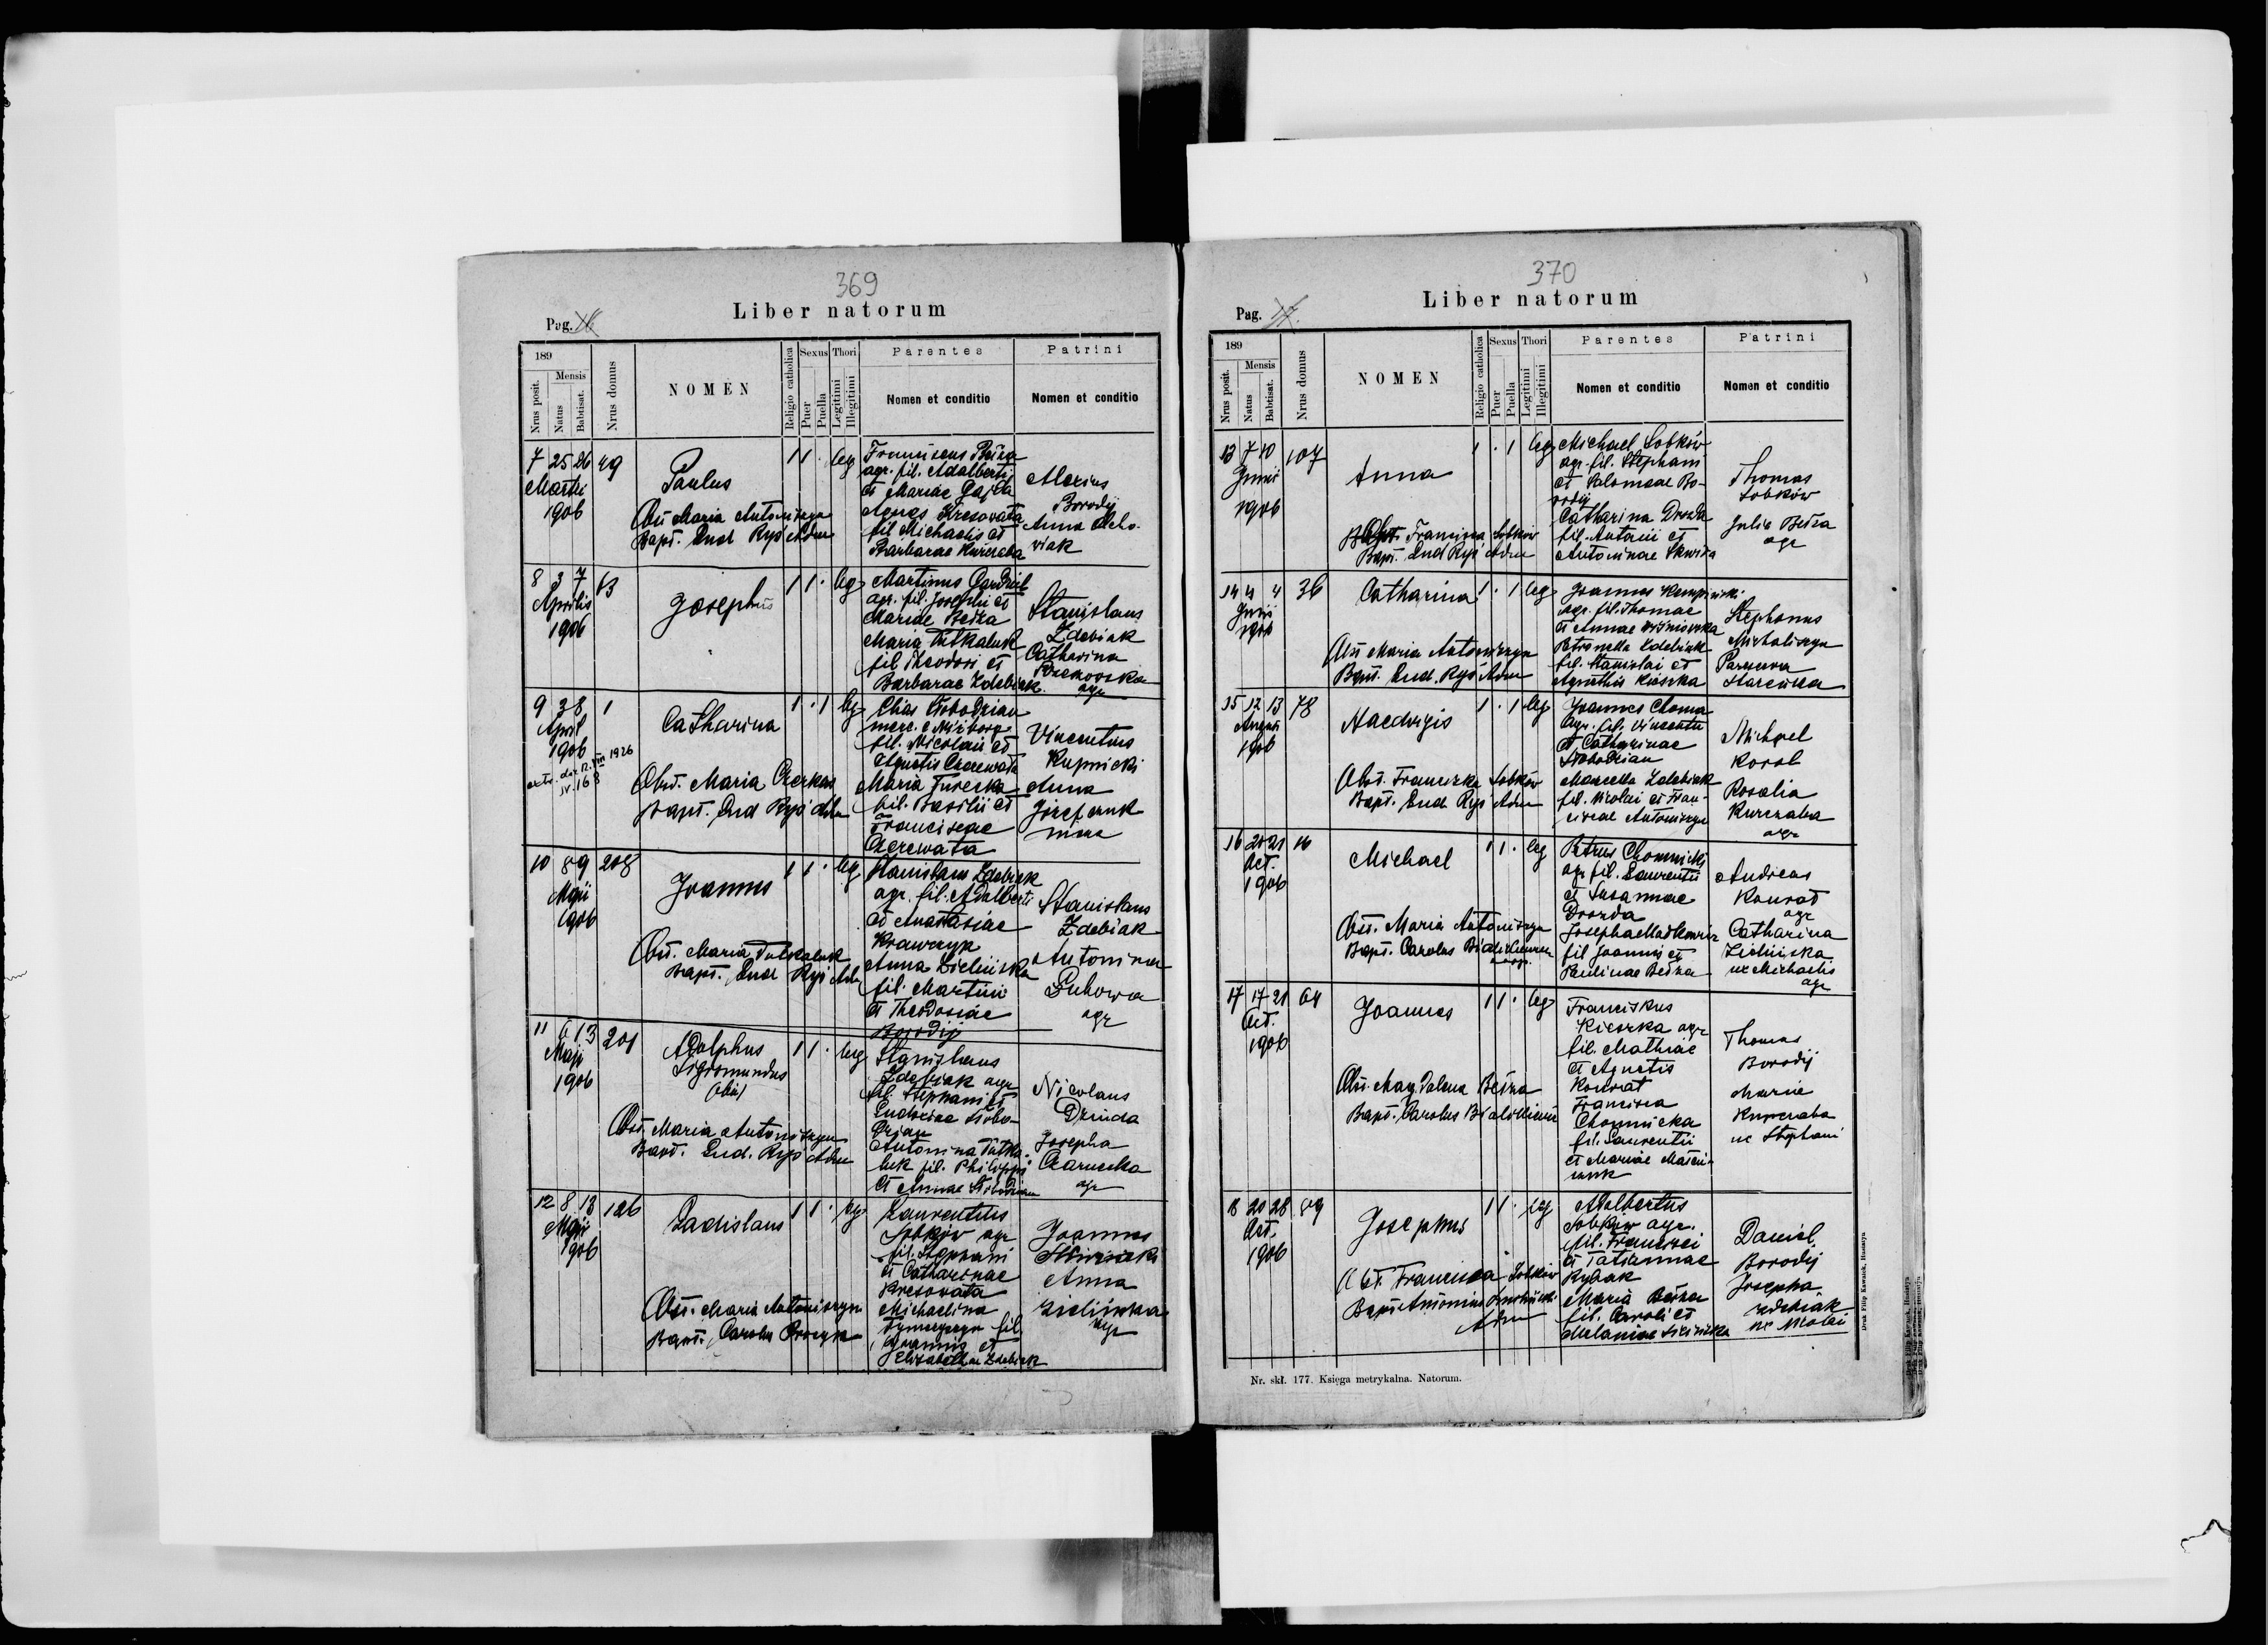 369
Liber natorum
Pag. 16
189
Nrus posit.
Mensis
Natus
Babtisat.
Nrus domus
NOMEN
Religio catholica
Sexus
Puer
Puella
Thori
Legitimi
Illegitimi
Parentes
Nomen et conditio
Patrini
Nomen et conditio
7 25 26 49
Martii
1906
Paulus
1 1 . leg
Obst. Maria Antoniszyn
Bapt. Lud Ryś Adm
Franciscus Beżka
agr. fil. Adalberti
et Mariae Gajda
Agnes Kresovata
fil Michaelis et
Barbarae Kurczaba
Alexius
Borodij
Anna Acho-
viak
8 3 7 63
Aprilis
1906
Josephus
1 1 . leg
Martinus
agr. fil. Josephi et
Mariae Beżka
Maria Tutkaluk
fil Theodori et
Barbarae Zdebiak
Stanislaus
Zdebiak
Catharina
agr
9 3 8 1
April
1906
extr. dat 12. VIII 1926
Catharina
1 . 1 leg
Obst. Maria Czerkas
Bapt. Lud Ryś Adm
Elias Słobodzian
merc. e Miżborg
fil. Nicolai et
Agnetis Czerewata
Maria Turecka
fil. Basilii et
Franciscae
Czerewata
Vincentius
Kupnicki
Anna
Józefczuk
10 8 9 208
Maji
1906
Joannes
1 1 . leg
Obst. Maria Tutkaluk
Bapt. Lud Ryś Adm
Stanislaus Zdebiak
agr. fil. Adalberti
et Anastasiae
Krawczyk
Anna Zielińska
fil. Martini
et Theodosiae
Borodij
Stanislaus
Zdebiak
Antonina
agr
11 6 13 201
Maji
1906
Adolphus
Sigismundus
(obiit)
1 1 . leg
Obst. Maria Antoniszyn
Bapt. Lud. Ryś Adm
Stanislaus
Zdebiak agr
fil. Stephani et
Ludovicae Słobo-
dzian
Antonina Tutka-
luk fil. Philippi
et Annae Słobodzian
Nicolaus
Josepha
Czarnecka
agr
12 8 13 126
Maji
1906
Ladislaus
1 1 . leg
Obst. Maria Antoniszyn
Bapt. Carolus Procyk
Laurentius
Sobków agr
fil. Stephani
et Catharinae
Kresovata
Michaelina
fil.
Joannis et
Elizabethae Zdebiak
Joannes
Anna
Zielińska
agr
370
Liber natorum
Pag. 17.
189
Nrus posit.
Mensis
Natus
Babtisat.
Nrus domus
NOMEN
Religio catholica
Sexus
Puer
Puella
Thori
Legitimi
Illegitimi
Parentes
Nomen et conditio
Patrini
Nomen et conditio
13 7 10 107
Junii
1906
Anna
1 . 1 leg
Obst. Francisca Sobków
Bapt. Lud Ryś Adm
Michael Sobków
agr. fil. Stephani
et Salomeae Bo-
rodij
Catharina Drozda
fil. Antonii et
Antoninae
Thomas
Sobków
Julia Beżka
agr
14 4 4 36
1906
Catharina
1 . 1 leg
Obst Maria Antoniszyn
Bapt. Lud. Ryś Adm
Joannes Kempiński
agr. fil. Thomae
et Annae Wiśniovska
Petronella Zdebiak
fil. Stanislai et
Agnethis Kieszka
Stephanus
Michaliszyn
15 12 13 78
Augusti
1906
Haedvigis
1 . 1 leg
Obst. Franciszka Sobków
Bapt. Lud Ryś Adm
Joannes Choma
agr. fil. Vincentii
et Catharinae
Słobodzian
Marcella Zdebiak
fil. Nicolai et Fran-
ciscae Antoniszyn
Michael
Korol
Rosalia
Kurczaba
agr
16 20 21 16
Oct.
1906
Michael
1 1 . leg
Obst. Maria Antoniszyn
Bapt. Carolus
Petrus Chomnicki
agr fil. Laurentii
et Susannae
Drozda
Josepha
fil Joannis et
Paulinae Beżka
Andreas
Konrad
agr
Catharina
Zielińska
ux Michaelis
agr
17 17 21 64
Oct.
1906
Joannes
1 1 . leg
Obst. Magdalena Beżka
Bapt. Carolus
Franciskus
Kieszka agr
fil. Mathiae
et Agnetis
Konrat
Francisca
Chomnicka
fil. Laurentii
et Mariae
Thomas
Borodij
Maria
Kurczaba
ux Stephani
18 20 28 89
Oct.
1906
Josephus
1 1 . leg
Obst. Francisca Sobków
Bapt Antonius
Adm
Adalbertus
Sobków agr.
fil. Francisci
et Tatiannae
Rybak
Maria Beżka
fil. Caroli et
Melaniae Zielińska
Daniel
Borodij
Josepha
Zdebiak
ux Nicolai
Druk Filip Kawalek, Husiatyn
Nr. skł. 177. Księga metrykalna. Natorum.